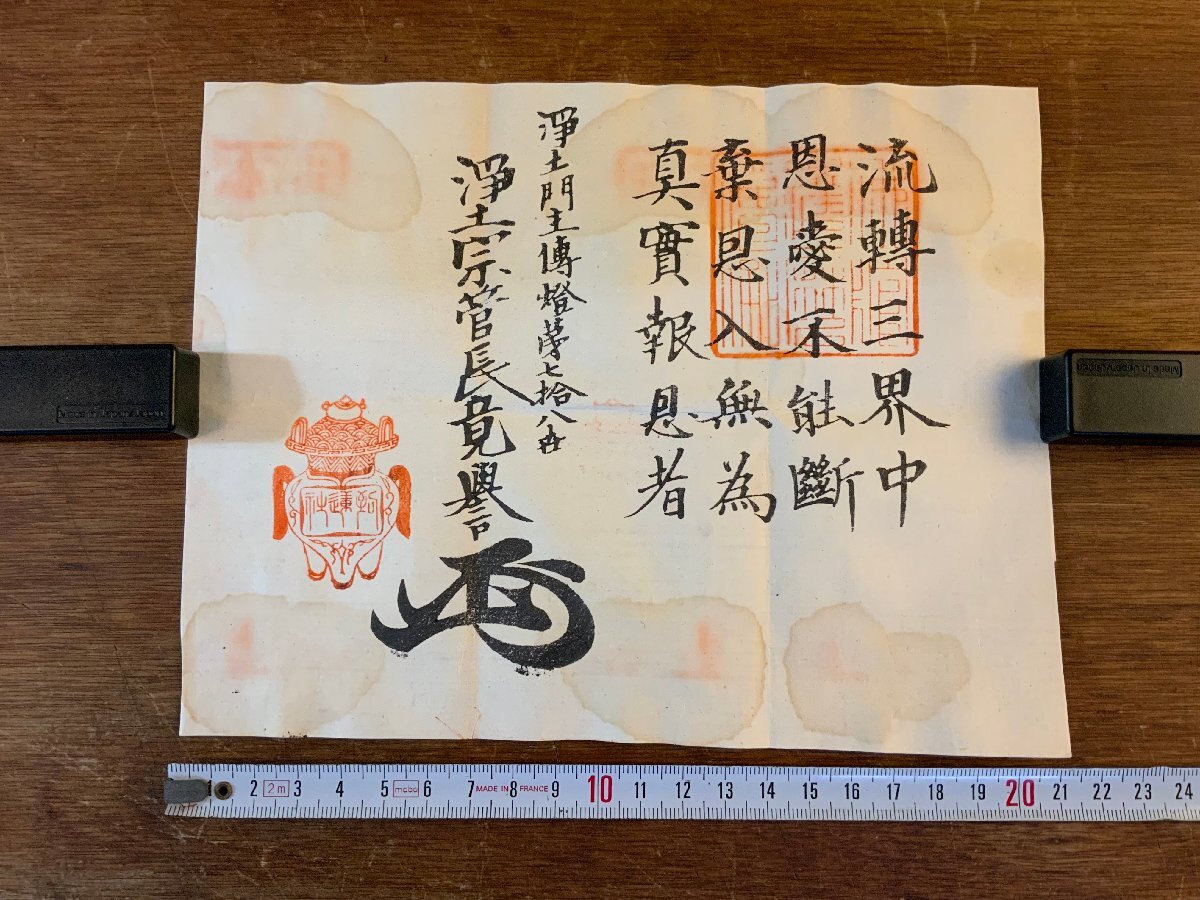 流轉三界中
恩愛不能斷
棄恩入無為
真實報恩者
淨土門主傳燈第七拾八世
淨土宗管長竟譽
2 2m 3 4 5 mabo 6 7 MADE IN FRANCE 8 9 10 11 12 13 14 15 16 17 18 19 20 21 22 23 24